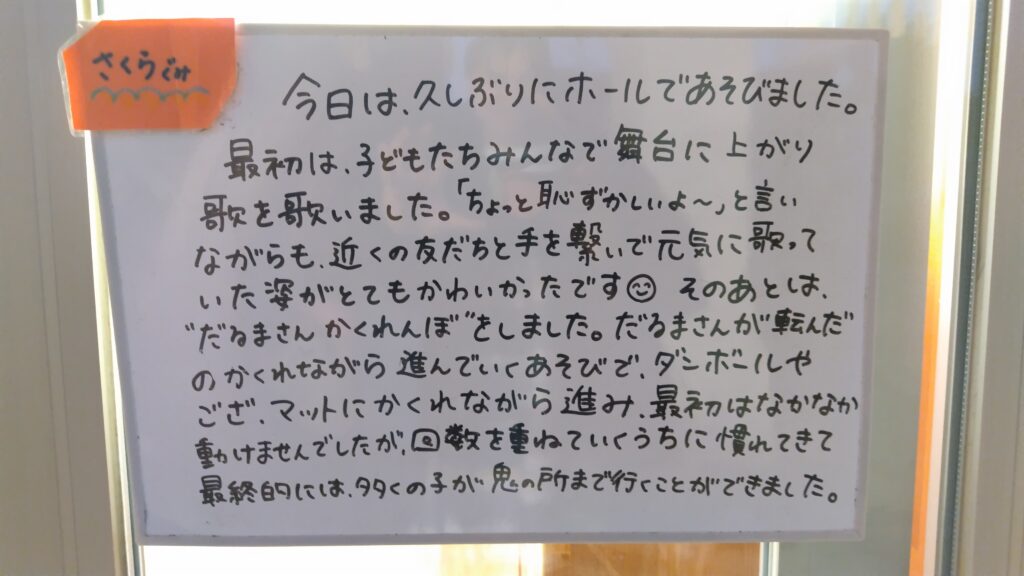 さくらぐみ
今日は、久しぶりにホールであそびました。
最初は、子どもたちみんなで舞台に上がり
歌を歌いました。「ちょっと恥ずかしいよ〜」と言い
ながらも、近くの友だちと手を繋いで元気に歌って
いた姿がとてもかわいかったです☺ そのあとは、
"だるまさんかくれんぼ"をしました。だるまさんが転んだ
のかくれながら進んでいくあそびで、ダンボールや
ござ、マットにかくれながら進み、最初はなかなか
動けませんでしたが、回数を重ねていくうちに慣れてきて
最終的には、多くの子が鬼の所まで行くことができました。